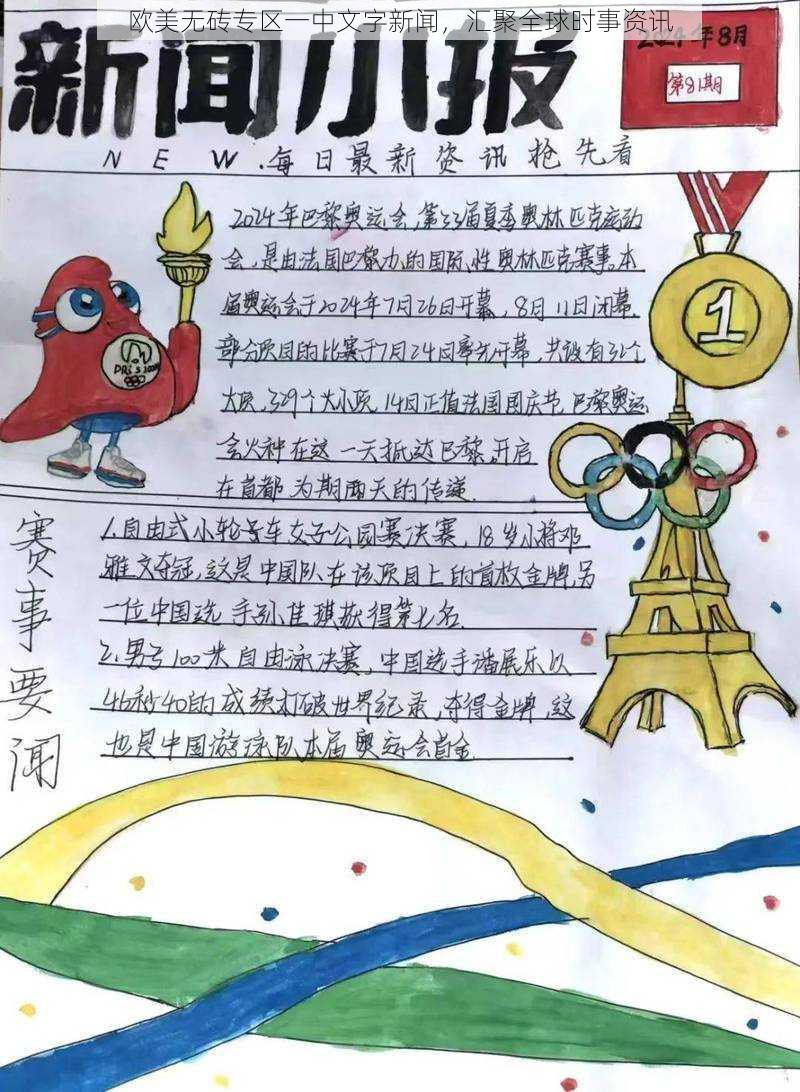 欧美无砖专区一中文字新闻，汇聚全球时事资讯
新闻小报
2024年8月
第81期
NEW.每日最新资讯抢先看
2024年巴黎奥运会,第33届夏季奥林匹克运动
会,是由法国巴黎办的国际性奥林匹克赛事。本
届奥运会于2024年7月26日开幕,8月11日闭幕.
部分项目的比赛于7月24日率先开幕,共设有32个
大项,329个大小项,14日正值法国国庆节,巴黎奥运
会火种在这一天抵达巴黎,开启
在首都为期两天的传递.
1
赛事要闻
1.自由式小轮车女子公园赛决赛,18岁小将邓
雅文夺冠,这是中国队在该项目上的首枚金牌,另
一位中国选手孙佳琪获得第七名.
2.男子100米自由泳决赛,中国选手潘展乐以
46秒40的成绩打破世界纪录,夺得金牌,这
也是中国游泳队本届奥运会首金.